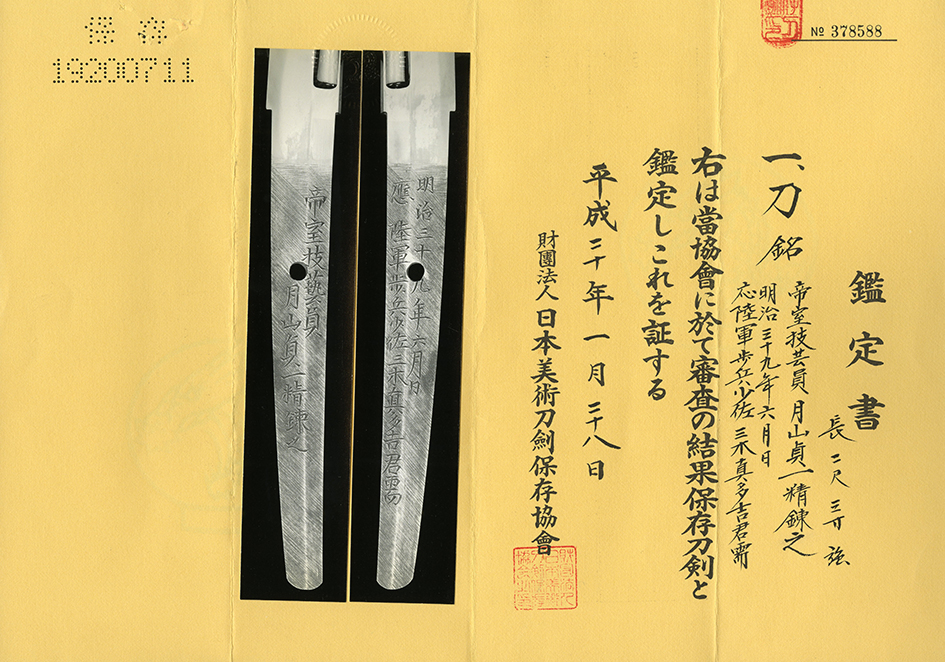 № 378588
鑑定書
長二尺三寸強
一、刀 銘
帝室技芸員月山貞一精錬之
明治三十九年六月日
応陸軍歩兵少佐三木真多吉君需
右は當協會に於て審査の結果保存刀剣と
鑑定しこれを証する
平成二十年一月二十八日
財團法人日本美術刀劍保存協會
明治三十九年六月日
應陸軍歩兵少佐三木真多吉君需
帝室技藝員
月山貞一精錬之
保存
19200711